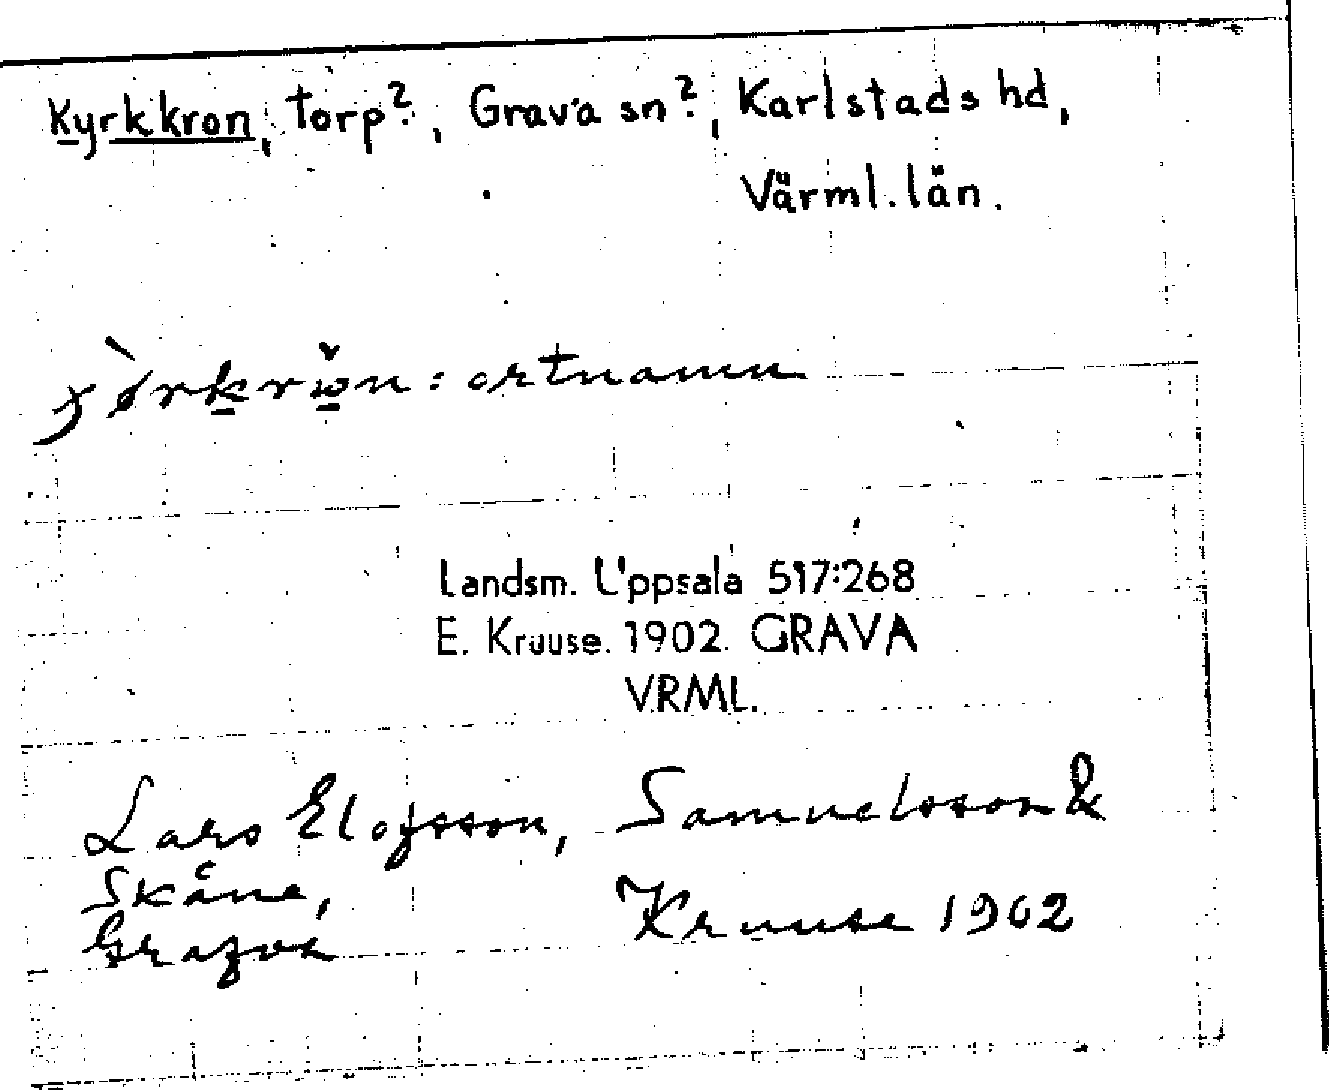 Kyrkkron, torp?, Grava sn?, Karlstads hd,
Värml. län.
: ortnamn
Landsm. Uppsala 517:268
E. Kruuse. 1902. GRAVA
VRML.
Lars Elofsson, Samuelsson &
Skåne, Kruuse 1902
Grafva